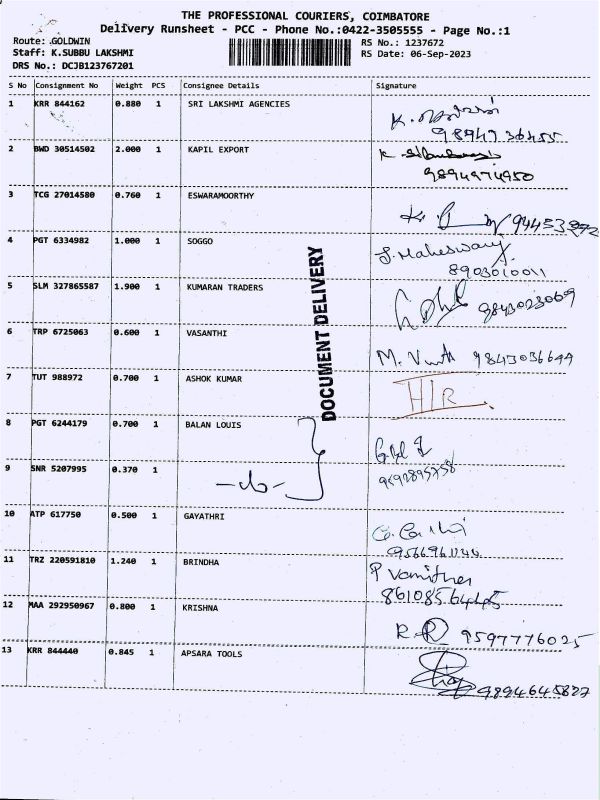 THE PROFESSIONAL COURIERS, COIMBATORE
Delivery Runsheet - PCC - Phone No.:0422-3505555 - Page No.:1
Route: GOLDWIN
RS No.: 1237672
Staff: K.SUBBU LAKSHMI
RS Date: 06-Sep-2023
DRS No.: DCJB123767201
S No Consignment No Weight PCS Consignee Details Signature
1 KRR 844162 0.880 1 SRI LAKSHMI AGENCIES
2 BWD 30514502 2.000 1 KAPIL EXPORT
9894974950
3 TCG 27014580 0.760 1 ESWARAMOORTHY
4 PGT 6334982 1.000 1 SOGGO
J. Maheswary
8903010011
5 SLM 327865587 1.900 1 KUMARAN TRADERS
9843023069
6 TRP 6725063 0.600 1 VASANTHI
9843036644
7 TUT 988972 0.700 1 ASHOK KUMAR
DOCUMENT DELIVERY
8 PGT 6244179 0.700 1 BALAN LOUIS
9 SNR 5207995 0.370 1
10 ATP 617750 0.500 1 GAYATHRI
11 TRZ 220591810 1.240 1 BRINDHA
12 MAA 292950967 0.800 1 KRISHNA
9597776025
13 KRR 844440 0.845 1 APSARA TOOLS
9894645827